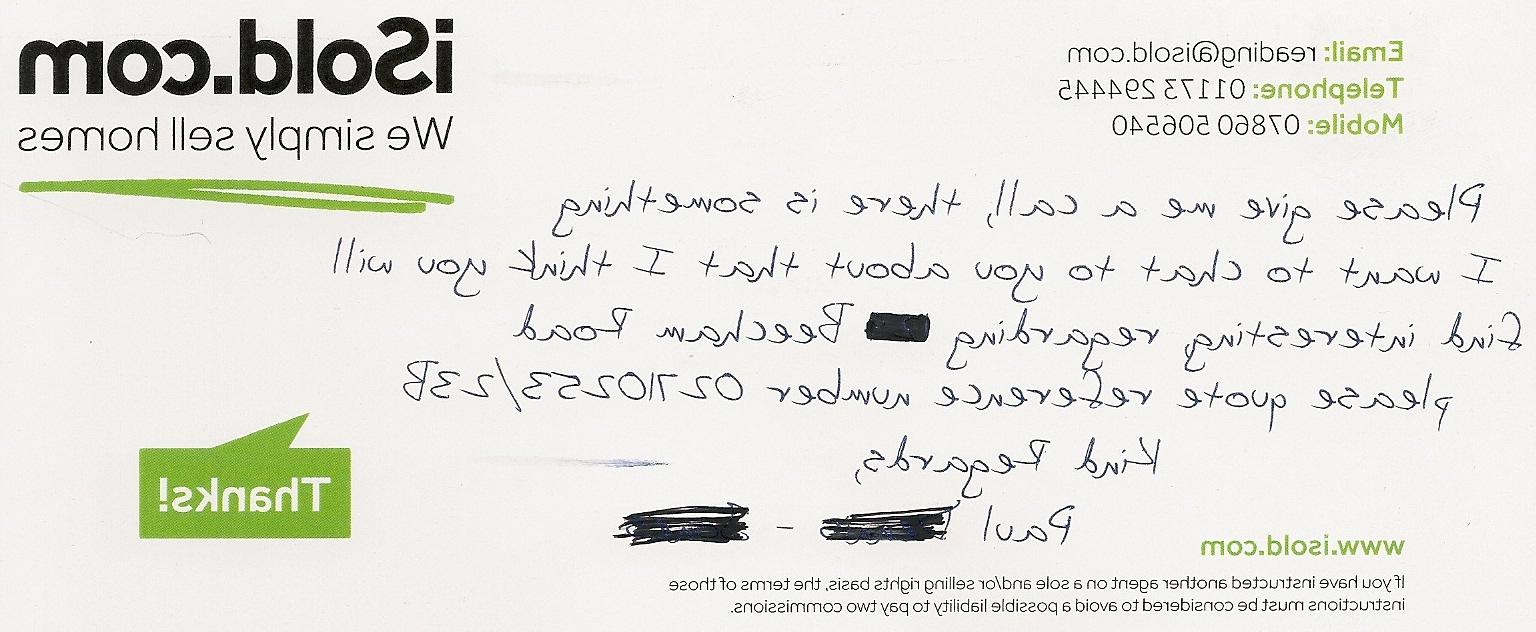 Email: reading@isold.com
Telephone: 01173 294445
Mobile: 07860 506540
iSold.com
We simply sell homes
Please give me a call, there is something
I want to chat to you about that I think you will
find interesting, regarding Beecham Road
please quote reference number 02710253/23B
Kind Regards,
Paul -
Thanks!
www.isold.com
If you have instructed another agent on a sole and/or selling rights basis, the terms of those
instructions must be considered to avoid a possible liability to pay two commmissions.